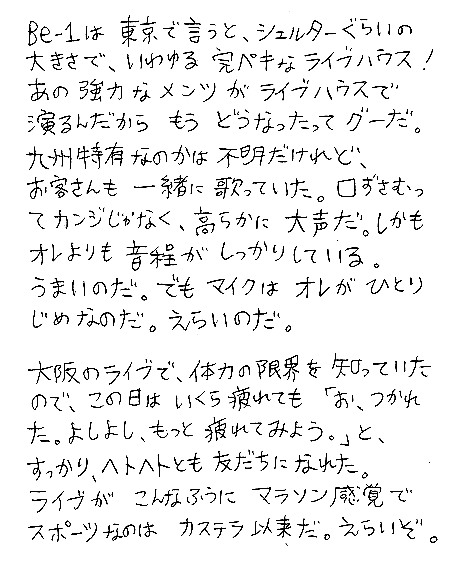 Be-1は 東京で言うと、シェルターぐらいの
大きさで、いわゆる 完ペキな ライヴハウス！
あの 強力な メンツ が ライヴハウスで
演るんだから もう どうなったって グーだ。
九州特有なのかは 不明だけれど、
お客さんも 一緒に 歌っていた。口ずさむっ
てカンジじゃなく、高らかに 大声だ。しかも
オレよりも 音程が しっかりしている。
うまいのだ。でも マイクは オレが ひとり
じめなのだ。えらいのだ。
大阪のライヴで、体力の限界を 知っていた
ので、この日は いくら 疲れても 「お、つかれ
た。よしよし、もっと 疲れてみよう。」と、
すっかり、ヘトヘトとも 友だちに なれた。
ライヴが こんなふうに マラソン感覚で
スポーツなのは カステラ以来だ。えらいぞ。